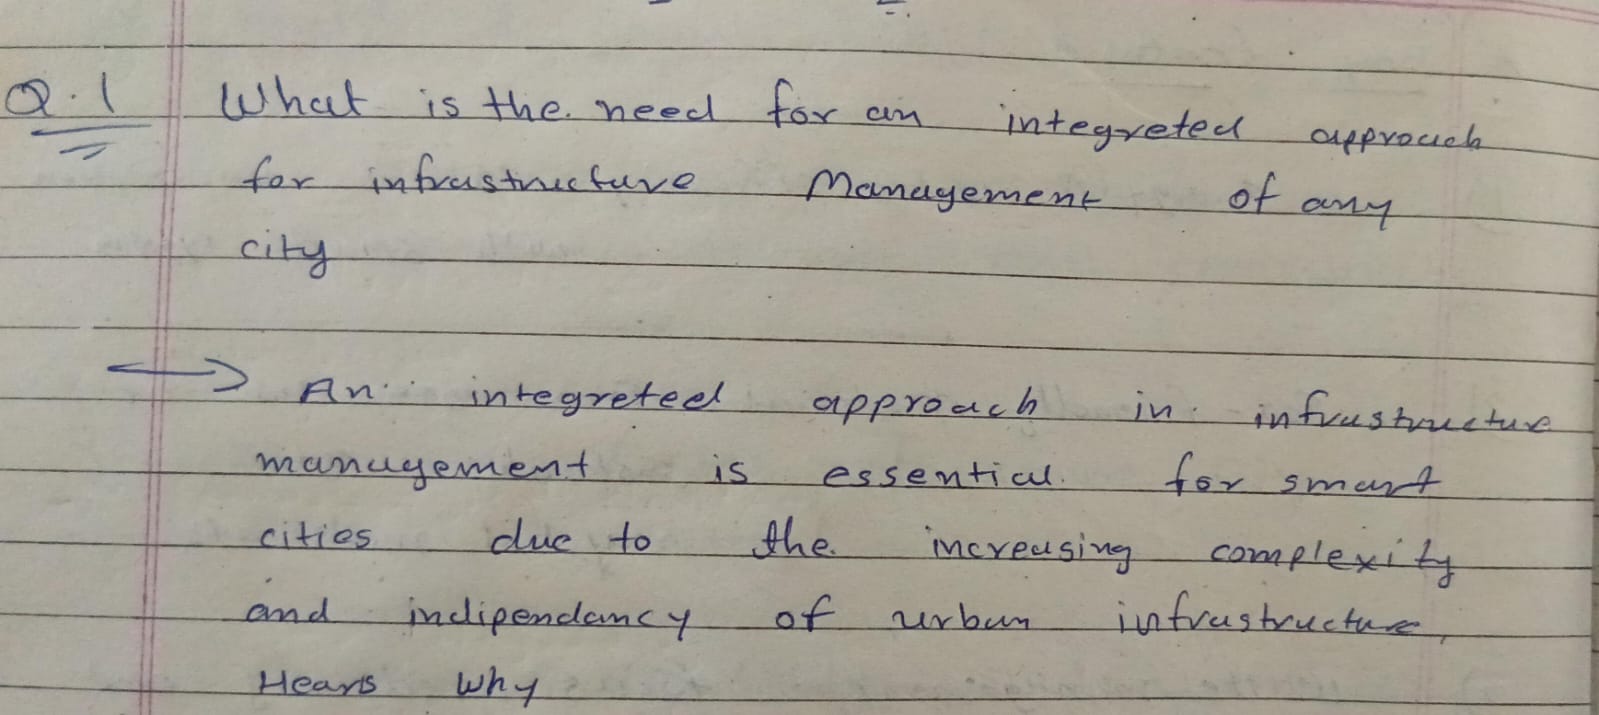 Q.1 What is the need for an integreted approach
for infrastructure Management of any
city
→ An integreted approach in infrastructure
management is essential for smart
cities due to the increasing complexity
and indipendancy of urban infrastructure,
Hears why